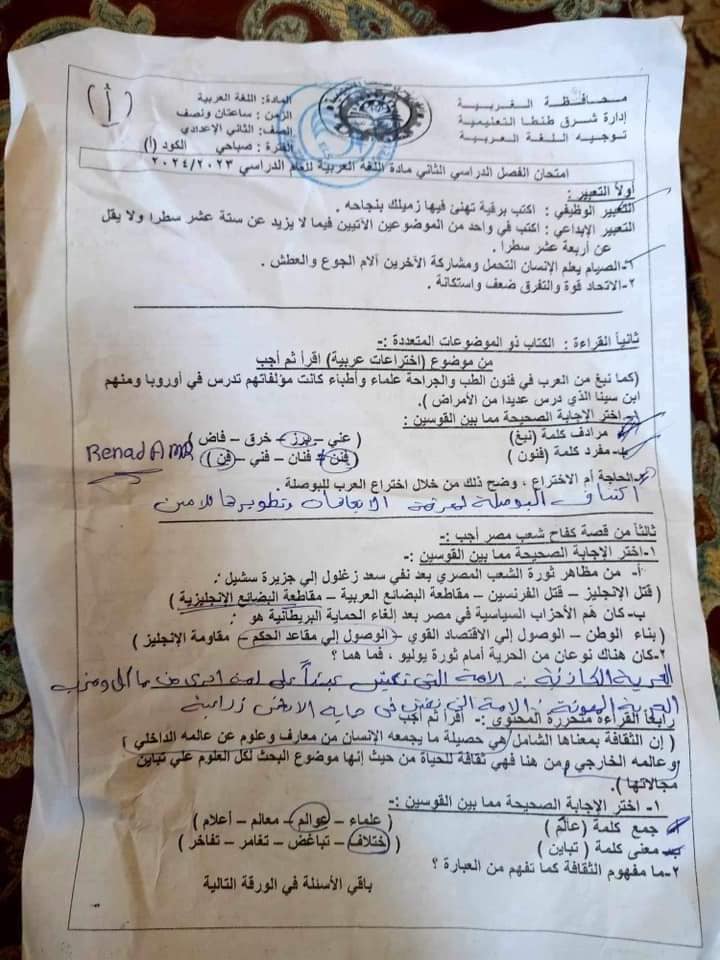 محافظة الغربية
إدارة شرق طنطا التعليمية
توجيه اللغة العربية
المادة: اللغة العربية
الزمن: ساعتان ونصف
الصف: الثاني الإعدادي
الفترة: صباحي الكود (أ)
(أ)
امتحان الفصل الدراسي الثاني مادة اللغة العربية للعام الدراسي ٢٠٢٤/٢٠٢٣
أولاً التعبير :
التعبير الوظيفي : اكتب برقية تهنئ فيها زميلك بنجاحه.
التعبير الإبداعي : اكتب في واحد من الموضوعين الآتيين فيما لا يزيد عن ستة عشر سطرا ولا يقل
عن أربعة عشر سطرا .
١-الصيام يعلم الإنسان التحمل ومشاركة الآخرين آلام الجوع والعطش .
٢-الاتحاد قوة والتفرق ضعف واستكانة .
ثانياً القراءة : الكتاب ذو الموضوعات المتعددة :-
من موضوع (اختراعات عربية) اقرأ ثم أجب
(كما نبغ من العرب في فنون الطب والجراحة علماء وأطباء كانت مؤلفاتهم تدرس في أوروبا ومنهم
ابن سينا الذي درس عديدا من الأمراض ).
١-اختر الإجابة الصحيحة مما بين القوسين :
أ- مرادف كلمة (نبغ) ( عني – برز – خرق – فاض )
ب- مفرد كلمة (فنون ) ( فنن – فنان – فني – فن )
Renad AMR
٢-الحاجة أم الاختراع ، وضح ذلك من خلال اختراع العرب للبوصلة .
اكتشاف البوصلة لمعرفة الاتجاهات وتطويرها
ثالثاً من قصة كفاح شعب مصر أجب :-
١-اختر الإجابة الصحيحة مما بين القوسين :-
أ- من مظاهر ثورة الشعب المصري بعد نفي سعد زغلول إلي جزيرة سشيل :.
( قتل الإنجليز – قتل الفرنسين – مقاطعة البضائع العربية – مقاطعة البضائع الإنجليزية )
ب-كان هَم الأحزاب السياسية في مصر بعد إلغاء الحماية البريطانية هو :
(بناء الوطن – الوصول إلي الاقتصاد القوي – الوصول إلي مقاعد الحكم – مقاومة الإنجليز )
٢-كان هناك نوعان من الحرية أمام ثورة يوليو ، فما هما ؟
الحرية الكاذبة :- الامة التى تعيش عبئاً على امة اخرى من مأكل ومشرب
الحرية :- الامة التى تعيش فى
رابعاً القراءة متحررة المحتوى :- اقرأ ثم أجب
( إن الثقافة بمعناها الشامل هي حصيلة ما يجمعه الإنسان من معارف وعلوم عن عالمه الداخلي
وعالمه الخارجي ومن هنا فهي ثقافة للحياة من حيث إنها موضوع البحث لكل العلوم علي تباين
مجالاتها ).
١- اختر الإجابة الصحيحة مما بين القوسين :-
أ- جمع كلمة (عالَم ) ( علماء – عوالم – معالم – أعلام )
ب- معنى كلمة ( تباين ) ( ختلاف – تباغض – تغامر – تفاخر )
٢-ما مفهوم الثقافة كما تفهم من العبارة ؟
باقي الأسئلة في الورقة التالية